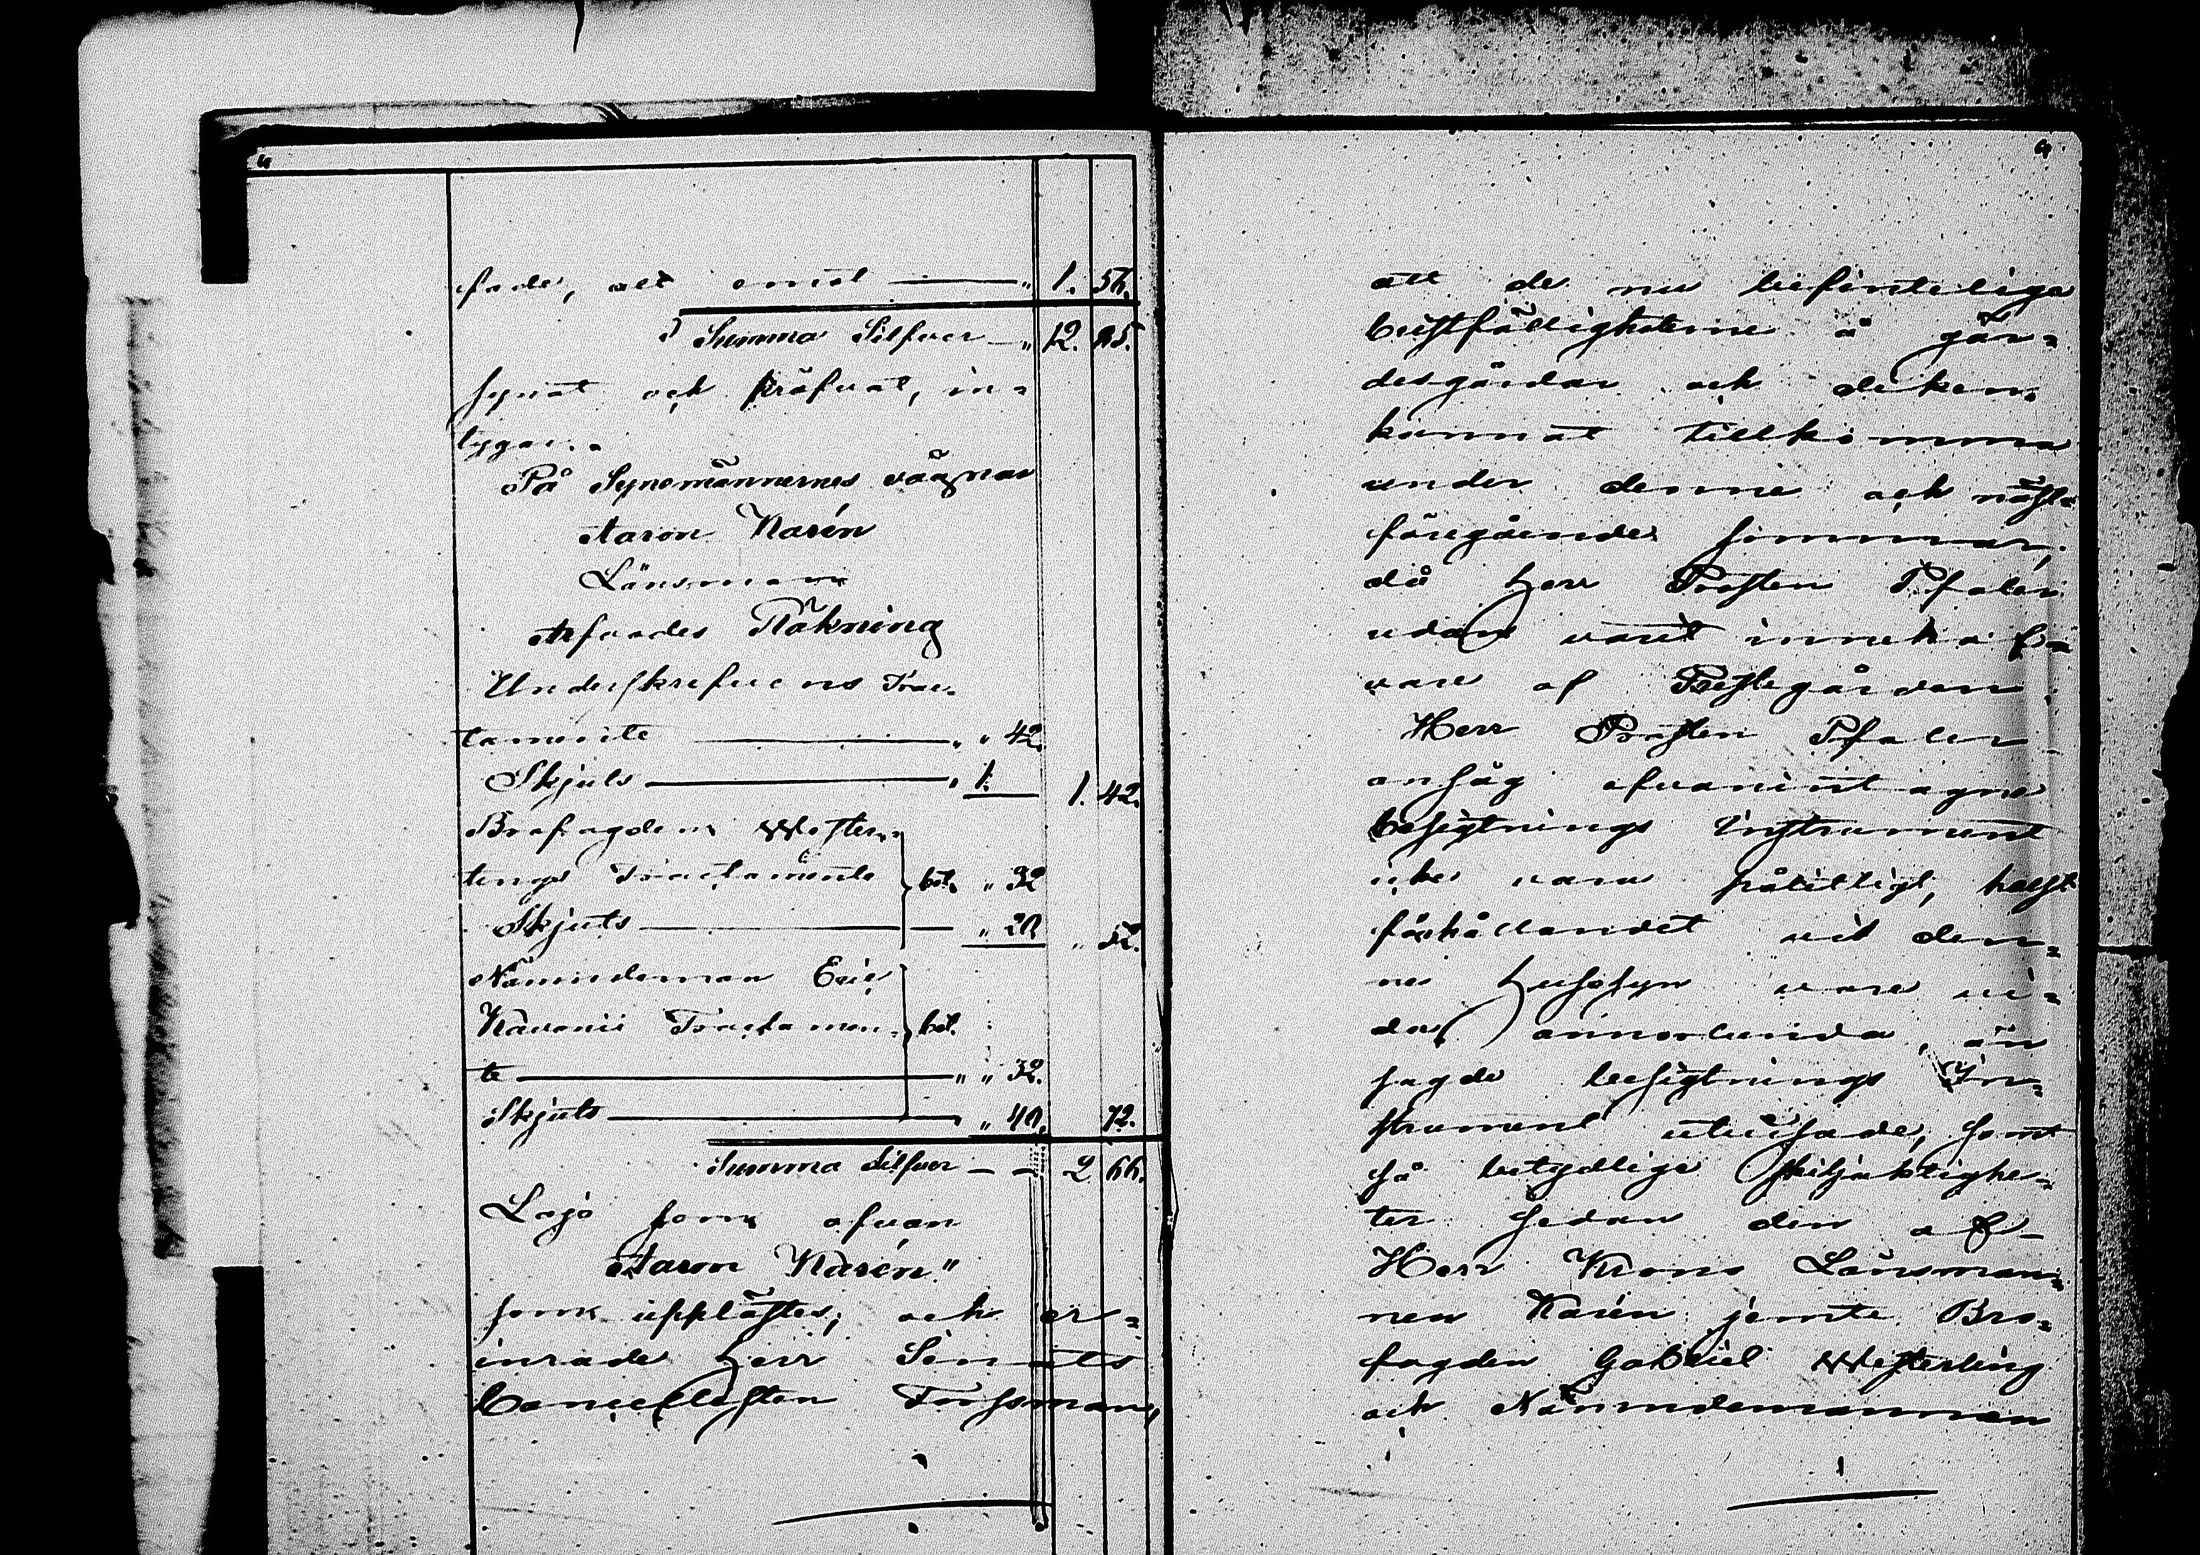 fade, allt emot — " 1. 56.
Summa Silfver — " 12. 25.
synat och pröfvat, in=
tygar.
På Synemännernes vägnar
Aaron Narén
Länsman
Arfvodes Räkning
Underskrefvens Trac=
tamente — " " 42.
Skjuts — " 1. 1. 42.
Brofogden Wester=
lings Tractamente bet. " 32
Skjuts — " 20 " 52.
Nämndeman Eric
Kavonii Tractamen= bet.
te — " " 32.
Skjuts — " 40. 72.
Summa Silfver — — 2 66.
Lojo som ofvan
Aaron Narén."
som upplästes; och er=
inrade Herr Senats
Cancellisten Forssman,
att de nu befinteliga
bristfälligheterne å gär=
desgårdar och diken
kunnat tillkomma
under denne och näst=
föregående sommar,
då Herr Prosten Pfaler
redan varit innehafva
vare af Prestegården.
Herr Prosten Pfaler
ansåg ofvanintagne
besigtnings Instrument
icke vara pålitligt, helst
förhållandet vid den=
ne Husesyn vore vi=
da annorlunda, än
sagde besigtnings In=
strument utvisade, samt
så betydlige skiljaktighe=
ter sedan den af
Herr Krono Länsman=
nen Narén jemte Bro=
fogden Gabriel Westerling
och Nämndemannen